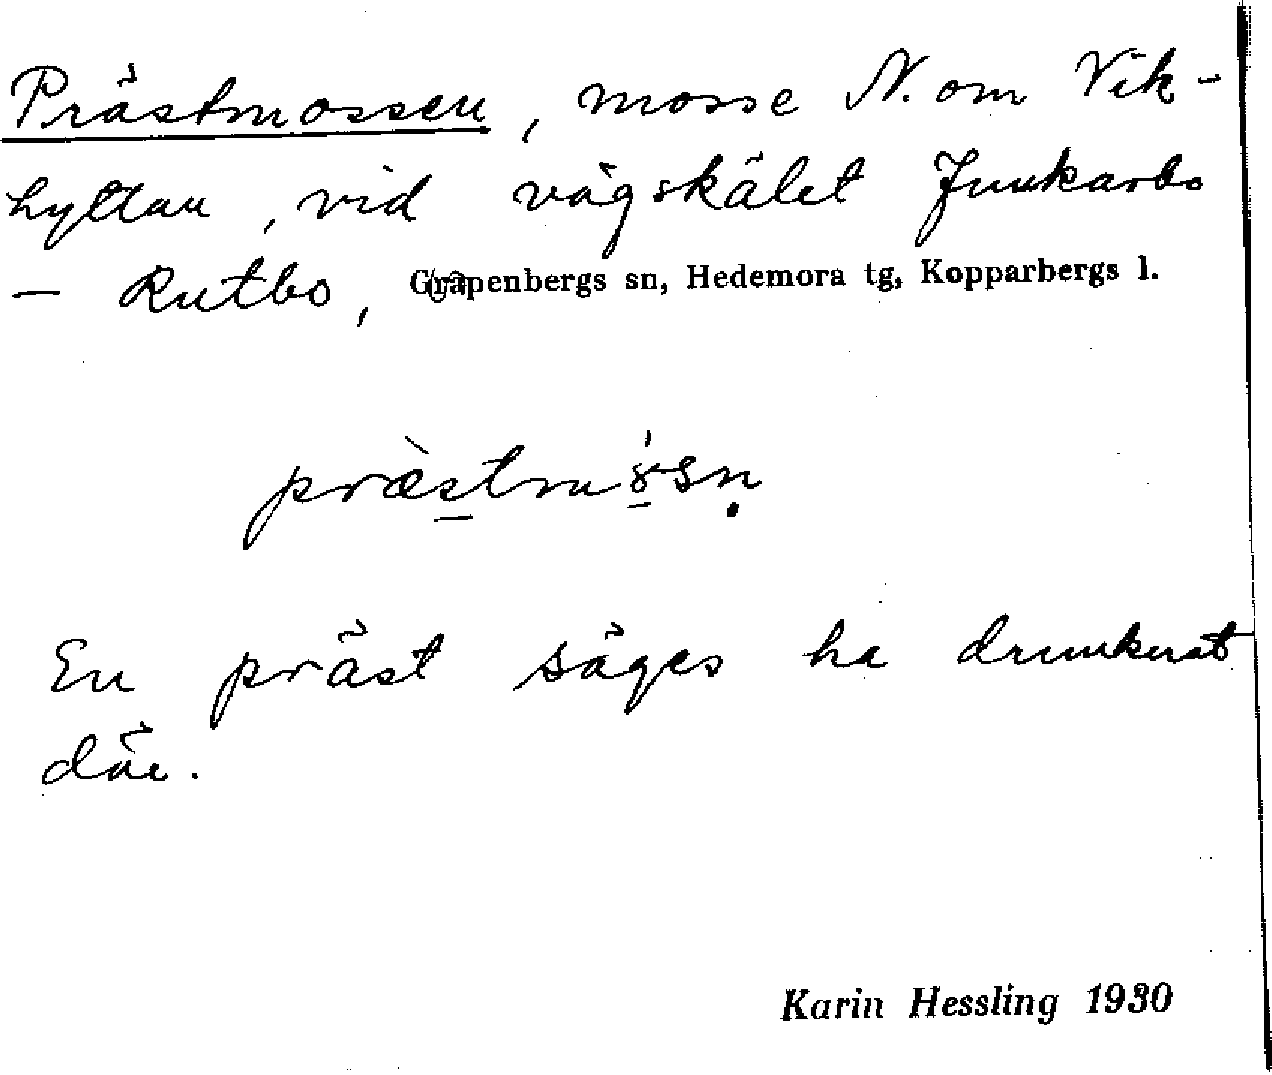 Prästmossen, mosse N. om Vik-
hyttan, vid vägskälet Junkarbo
– Rutbo, Garpenbergs sn, Hedemora tg, Kopparbergs l.
præ̀stmɷ́sn̥
En präst säges ha drunknat
där.
Karin Hessling 1930